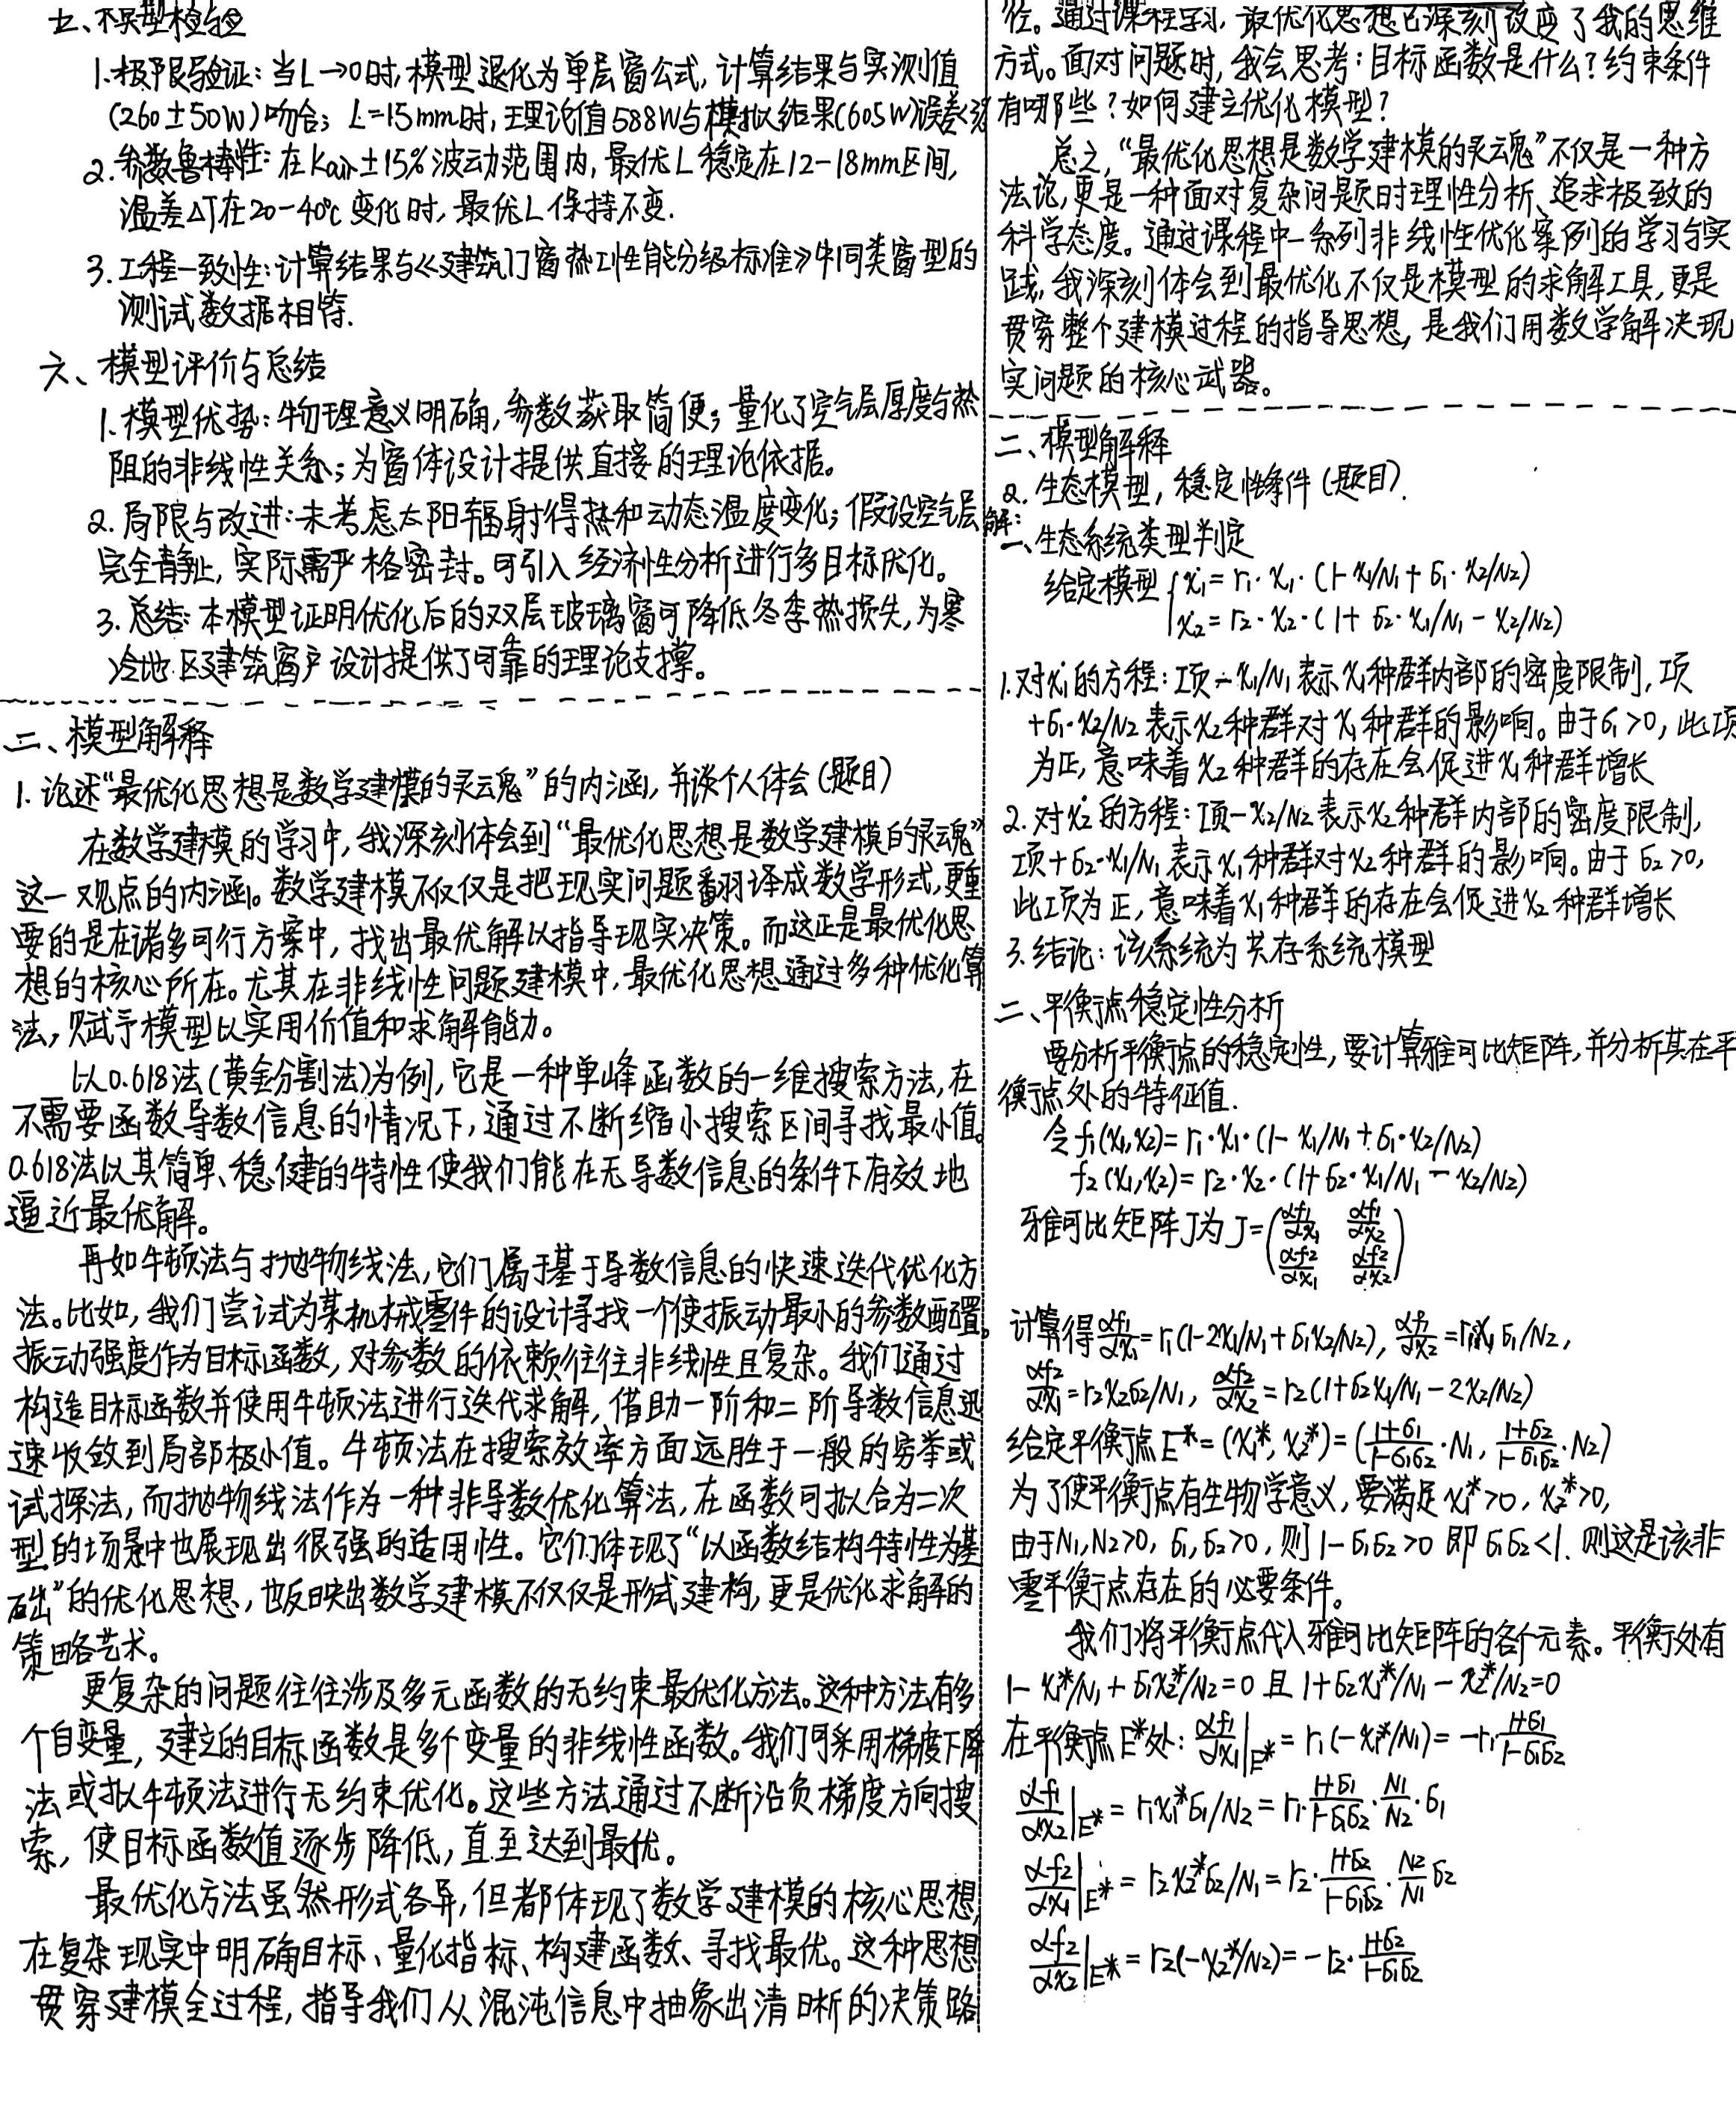 五、模型检验
1.极限验证：当L→0时,模型退化为单层窗公式,计算结果与实测值
(260±50W)吻合；L=15mm时,理论值588W与模拟结果(605W)误差
2.参数鲁棒性：在Kair±15%波动范围内,最优L稳定在12-18mm区间,
温差△T在20-40℃变化时,最优L保持不变.
3.工程一致性：计算结果与《建筑门窗热工性能分级标准》中同类窗型的
测试数据相符.
六、模型评价与总结
1.模型优势：物理意义明确,参数获取简便；量化了空气层厚度与热
阻的非线性关系；为窗体设计提供直接的理论依据。
2.局限与改进：未考虑太阳辐射得热和动态温度变化；假设空气层
完全静止,实际需严格密封。可引入经济性分析进行多目标优化。
3.总结：本模型证明优化后的双层玻璃窗可降低冬季热损失,为寒
冷地区建筑窗户设计提供了可靠的理论支撑。
二、模型解释
1.论述“最优化思想是数学建模的灵魂”的内涵,并谈个人体会(题目)
在数学建模的学习中,我深刻体会到“最优化思想是数学建模的灵魂”
这一观点的内涵。数学建模不仅仅是把现实问题翻译成数学形式,更重
要的是在诸多可行方案中,找出最优解以指导现实决策。而这正是最优化思
想的核心所在。尤其在非线性问题建模中,最优化思想通过多种优化算
法,赋予模型以实用价值和求解能力。
以0.618法(黄金分割法)为例,它是一种单峰函数的一维搜索方法,在
不需要函数导数信息的情况下,通过不断缩小搜索区间寻找最小值。
0.618法以其简单、稳健的特性使我们能在无导数信息的条件下有效地
逼近最优解。
再如牛顿法与抛物线法,它们属于基于导数信息的快速迭代优化方
法。比如,我们尝试为某机械零件的设计寻找一个使振动最小的参数配置。
振动强度作为目标函数,对参数的依赖往往非线性且复杂。我们通过
构造目标函数并使用牛顿法进行迭代求解,借助一阶和二阶导数信息迅
速收敛到局部极小值。牛顿法在搜索效率方面远胜于一般的穷举或
试探法,而抛物线法作为一种非导数优化算法,在函数可拟合为二次
型的场景中也展现出很强的适用性。它们体现了“以函数结构特性为基
础”的优化思想,也反映出数学建模不仅仅是形式建构,更是优化求解的
策略艺术。
更复杂的问题往往涉及多元函数的无约束最优化方法。这种方法有多
个自变量,建立的目标函数是多个变量的非线性函数。我们可采用梯度下降
法或拟牛顿法进行无约束优化。这些方法通过不断沿负梯度方向搜
索,使目标函数值逐步降低,直至达到最优。
最优化方法虽然形式各异,但都体现了数学建模的核心思想,
在复杂现实中明确目标、量化指标、构建函数、寻找最优。这种思想
贯穿建模全过程,指导我们从混沌信息中抽象出清晰的决策路
径。通过课程学习,最优化思想已深刻改变了我的思维
方式。面对问题时,我会思考：目标函数是什么?约束条件
有哪些?如何建立优化模型?
总之,“最优化思想是数学建模的灵魂”不仅是一种方
法论,更是一种面对复杂问题时理性分析、追求极致的
科学态度。通过课程中一系列非线性优化案例的学习与实
践,我深刻体会到最优化不仅是模型的求解工具,更是
贯穿整个建模过程的指导思想,是我们用数学解决现
实问题的核心武器。
二、模型解释
2.生态模型,稳定性条件(题目).
解：
一、生态系统类型判定
给定模型{ẋ₁=r₁·x₁·(1-x₁/N₁+σ₁·x₂/N₂)
ẋ₂=r₂·x₂·(1+σ₂·x₁/N₁-x₂/N₂)
1.对ẋ₁的方程：项-x₁/N₁表示x₁种群内部的密度限制,项
+σ₁·x₂/N₂表示x₂种群对x₁种群的影响。由于σ₁>0,此项
为正,意味着x₂种群的存在会促进x₁种群增长
2.对ẋ₂的方程：项-x₂/N₂表示x₂种群内部的密度限制,
项+σ₂·x₁/N₁表示x₁种群对x₂种群的影响。由于σ₂>0,
此项为正,意味着x₁种群的存在会促进x₂种群增长
3.结论：该系统为共存系统模型
二、平衡点稳定性分析
要分析平衡点的稳定性,要计算雅可比矩阵,并分析其在平
衡点处的特征值.
令f₁(x₁,x₂)=r₁·x₁·(1-x₁/N₁+σ₁·x₂/N₂)
f₂(x₁,x₂)=r₂·x₂·(1+σ₂·x₁/N₁-x₂/N₂)
雅可比矩阵J为J=(αf₁/αx₁ αf₁/αx₂
αf₂/αx₁ αf₂/αx₂)
计算得αf₁/αx₁=r₁(1-2x₁/N₁+σ₁x₂/N₂), αf₁/αx₂=r₁x₁σ₁/N₂,
αf₂/αx₁=r₂x₂σ₂/N₁, αf₂/αx₂=r₂(1+σ₂x₁/N₁-2x₂/N₂)
给定平衡点E*=(x₁*,x₂*)=((1+σ₁)/(1-σ₁σ₂)·N₁, (1+σ₂)/(1-σ₁σ₂)·N₂)
为了使平衡点有生物学意义,要满足x₁*>0,x₂*>0,
由于N₁,N₂>0,σ₁,σ₂>0,则1-σ₁σ₂>0即σ₁σ₂<1.则这是该非
零平衡点存在的必要条件。
我们将平衡点代入雅可比矩阵的各个元素。平衡处有
1-x₁*/N₁+σ₁x₂*/N₂=0且1+σ₂x₁*/N₁-x₂*/N₂=0
在平衡点E*处：αf₁/αx₁|E*=r₁(-x₁*/N₁)=-r₁·(1+σ₁)/(1-σ₁σ₂)
αf₁/αx₂|E*=r₁x₁*σ₁/N₂=r₁·(1+σ₁)/(1-σ₁σ₂)·N₁/N₂·σ₁
αf₂/αx₁|E*=r₂x₂*σ₂/N₁=r₂·(1+σ₂)/(1-σ₁σ₂)·N₂/N₁σ₂
αf₂/αx₂|E*=r₂(-x₂*/N₂)=-r₂·(1+σ₂)/(1-σ₁σ₂)